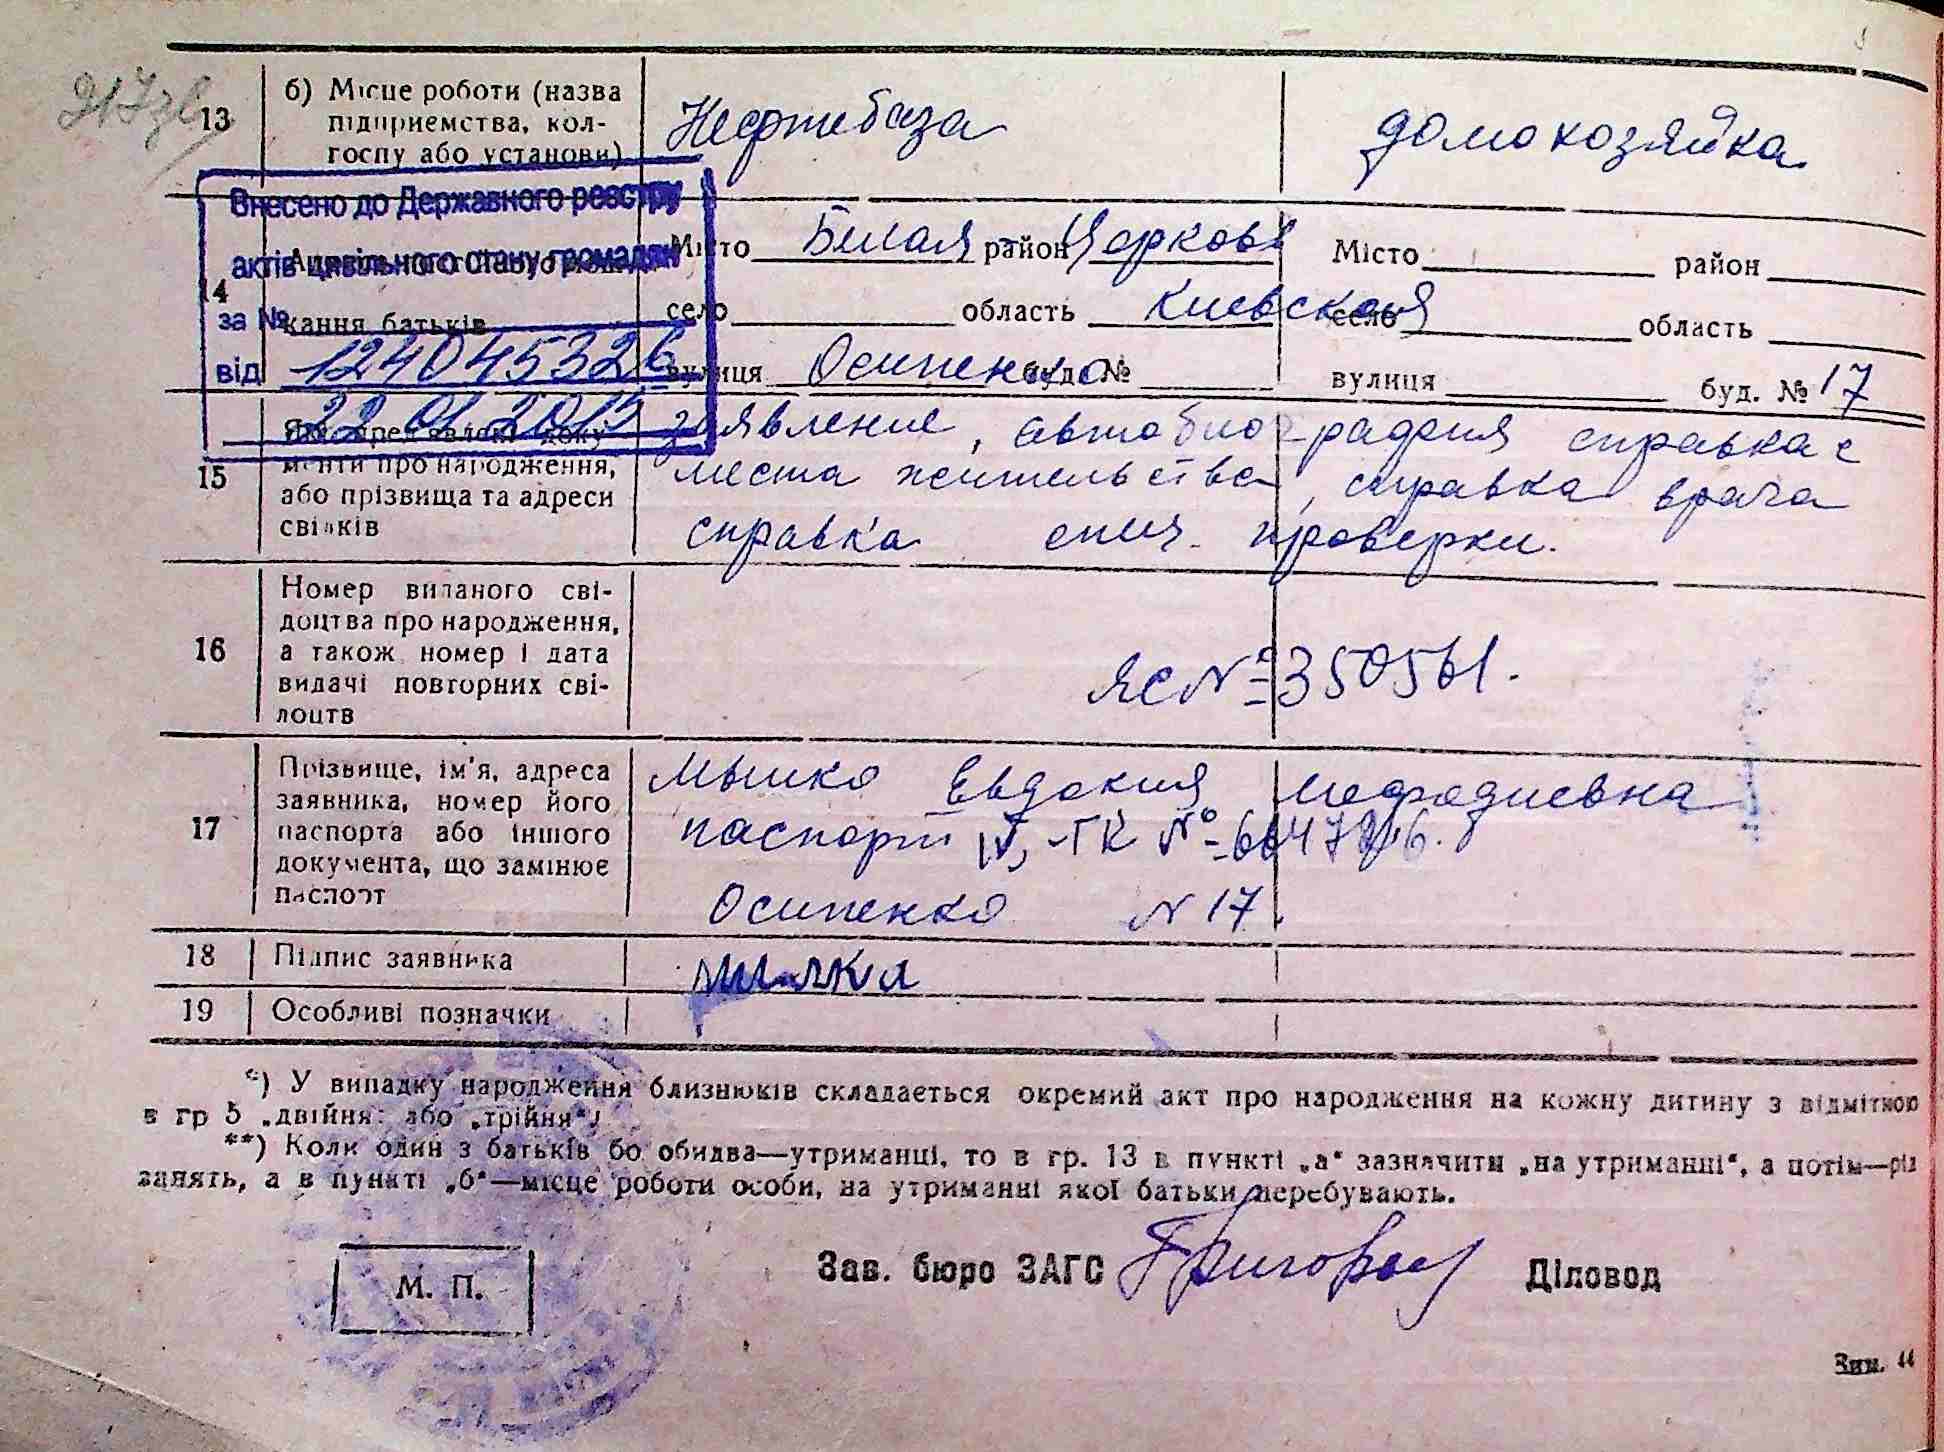 13 б) Місце роботи (назва підприємства, колгоспу або установи) Нефтебаза домохозяйка
Внесено до Державного реєстру
актів цивільного стану громадян
за №
від 1240453326
22 01 2015
14
кання батьків
Місто Белая район Церковь Місто район
село область Киевская село область
вулиця Осипенко буд. № вулиця буд. № 17
15 менти про народження, або прізвища та адреси свідків
заявление, автобиография справка с
места жительства, справка врача
справка спич. проверки.
16 Номер виданого сві-
доцтва про народження,
а також номер і дата
видачі повторних сві-
доцтв
ЯС № 350561.
17 Прізвище, ім'я, адреса
заявника, номер його
паспорта або іншого
документа, що замінює
паспорт
Мышко Евдокия Мефодиевна
паспорт IV-ГК №
Осипенко N 17.
18 Підпис заявника
19 Особливі позначки
*) У випадку народження близнюків складається окремий акт про народження на кожну дитину з відміткою
в гр 5 „двійня" або „трійня"
**) Коли один з батьків бо обидва—утриманці, то в гр. 13 в пункті „а" зазначити „на утриманні", а потім—рід
занять, а в пункті „б"—місце роботи особи, на утриманні якої батьки перебувають.
М. П.
Зав. бюро ЗАГС Діловод
Зам. 44